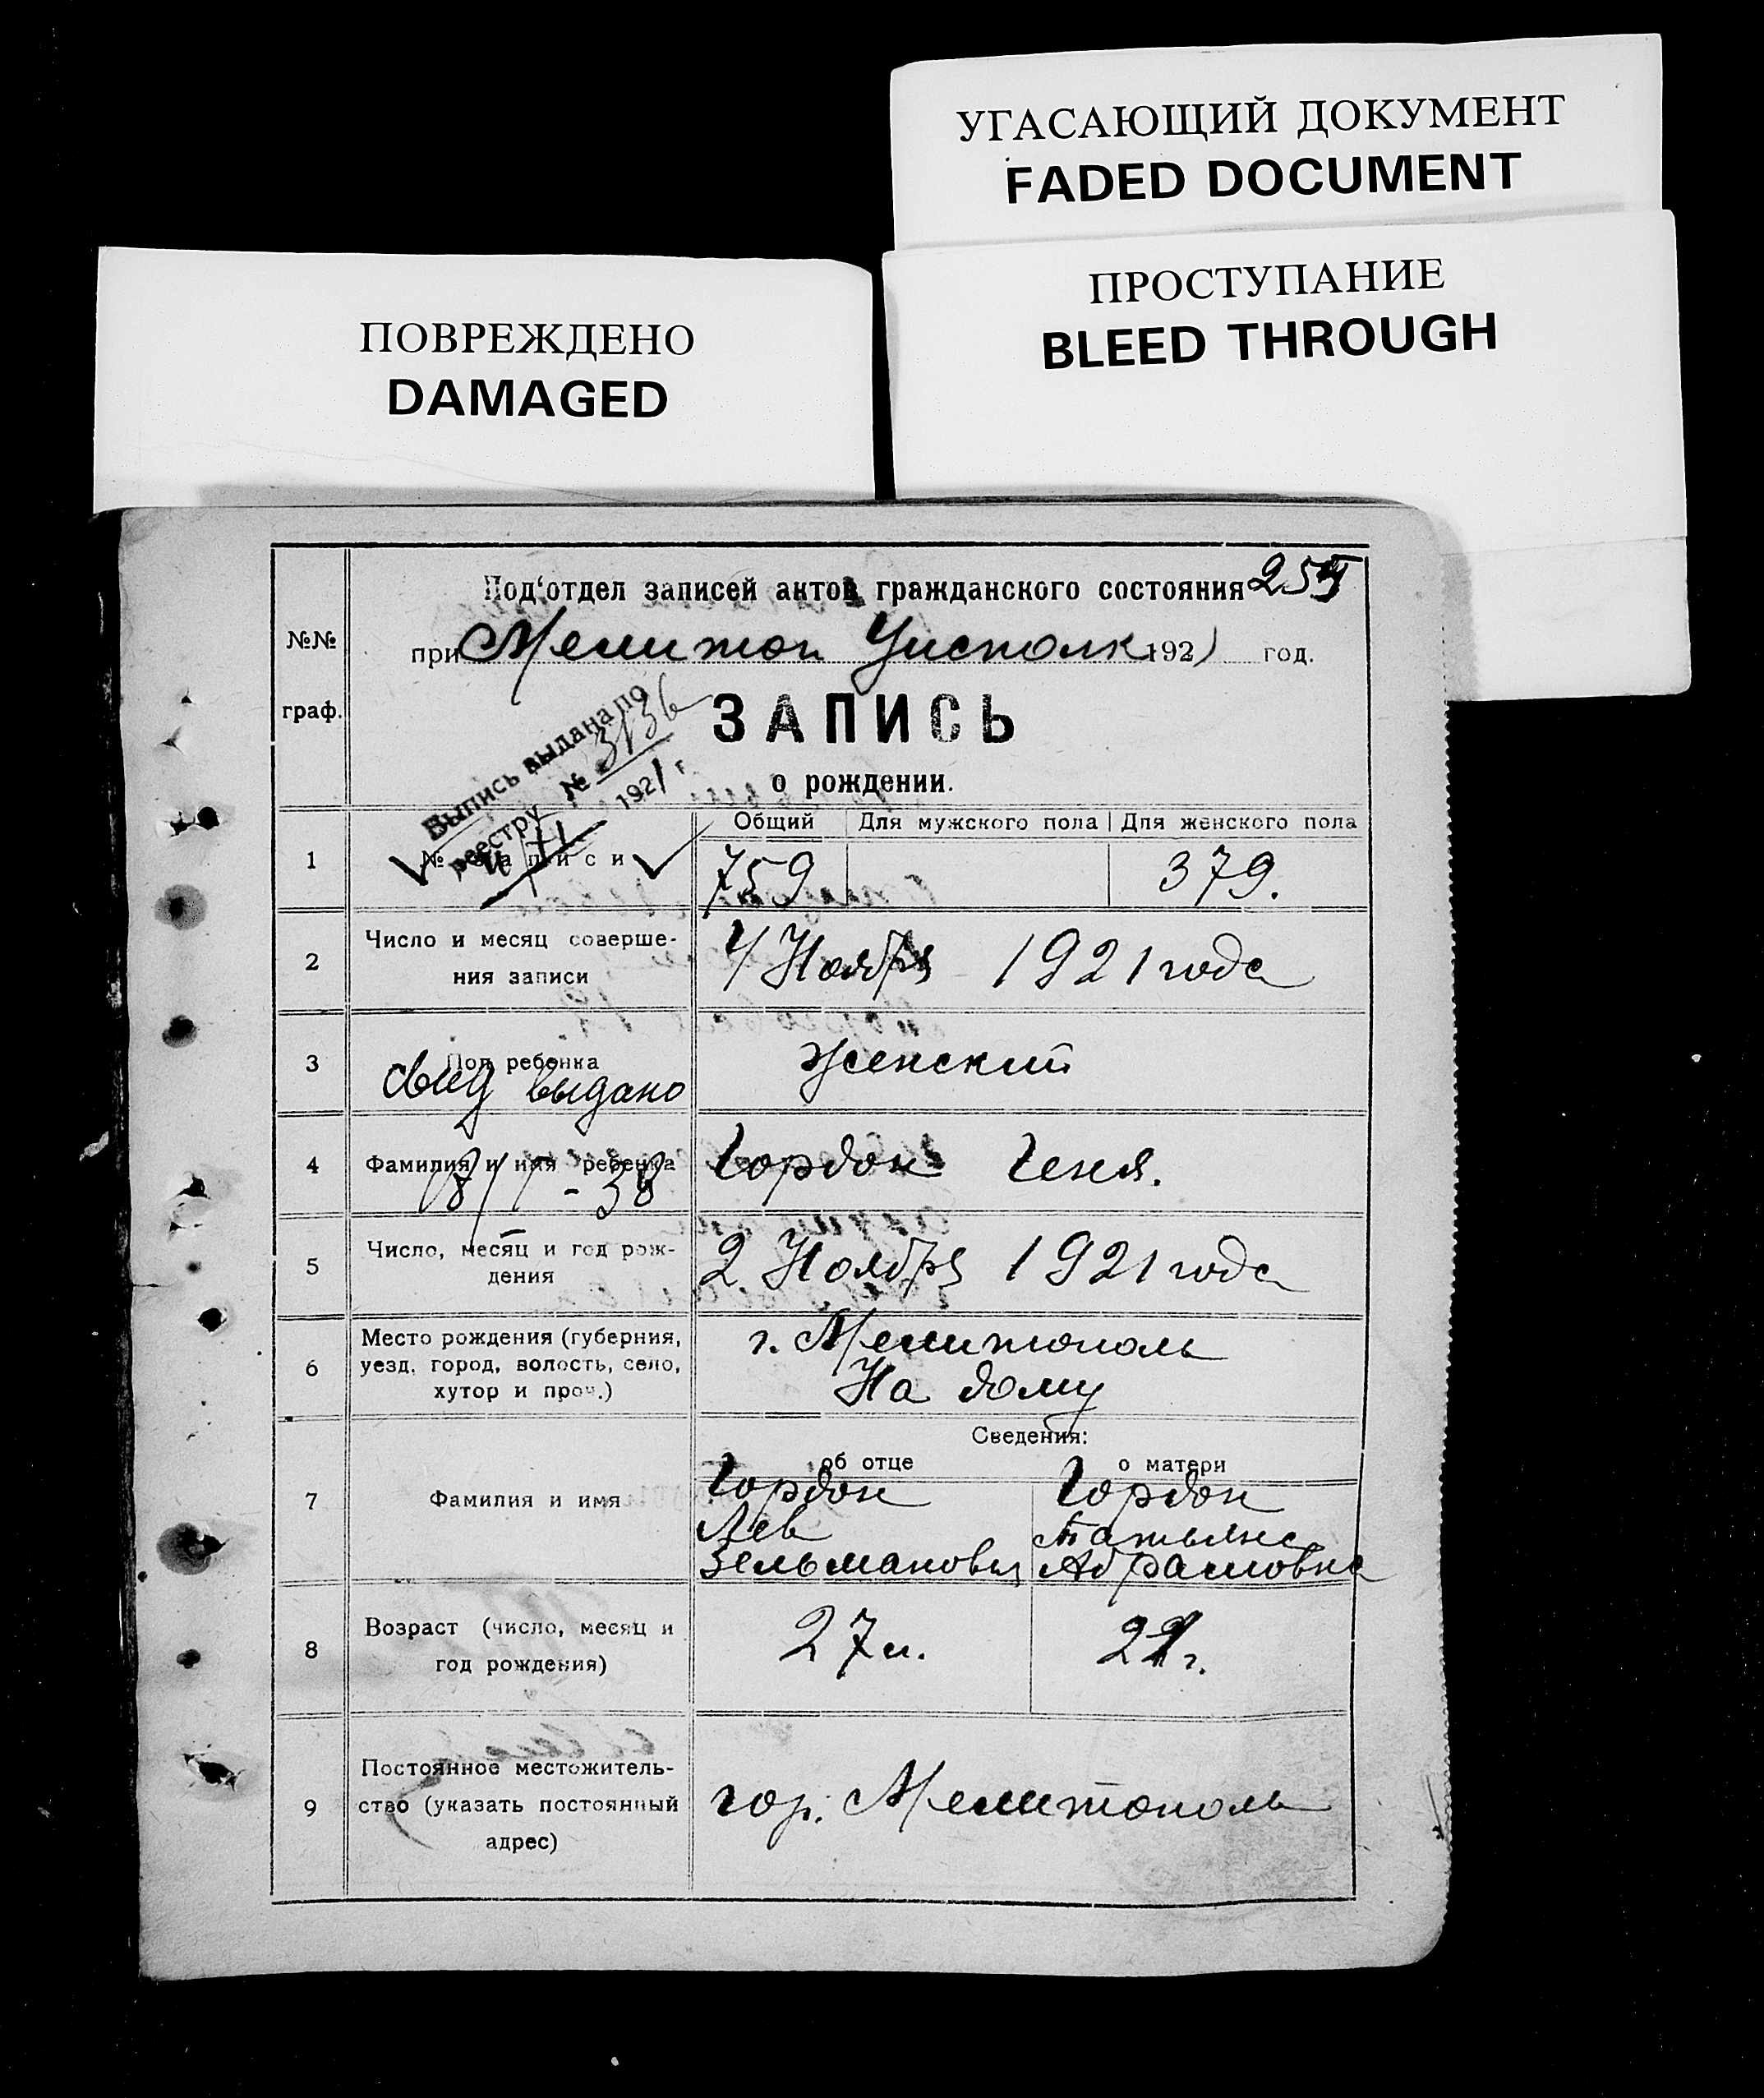 УГАСАЮЩИЙ ДОКУМЕНТ
FADED DOCUMENT
ПРОСТУПАНИЕ
BLEED THROUGH
ПОВРЕЖДЕНО
DAMAGED
Под‘отдел записей актов гражданского состояния
при Мелитоп Уисполк 1921 год.
№№ граф.
ЗАПИСЬ
о рождении.
Выпись выдана по
реестру № 3136
1921 г
Общий Для мужского пола Для женского пола
1 № записи 759 379.
2 Число и месяц соверше-
ния записи
4 Ноября 1921 года
3 Пол ребенка женский
Свид выдано
4 Фамилия и имя ребенка Гордон Геня.
5 Число, месяц и год рож-
дения
2 Ноября 1921 года
6 Место рождения (губерния,
уезд, город, волость, село,
хутор и проч.)
г. Мелитополь
На дому
Сведения:
об отце о матери
7 Фамилия и имя
Гордон Гордон
Лев Татьяна
Зельманович Абрамовна
8 Возраст (число, месяц и
год рождения)
27 л. г.
9 Постоянное местожитель-
ство (указать постоянный
адрес)
гор. Мелитополь